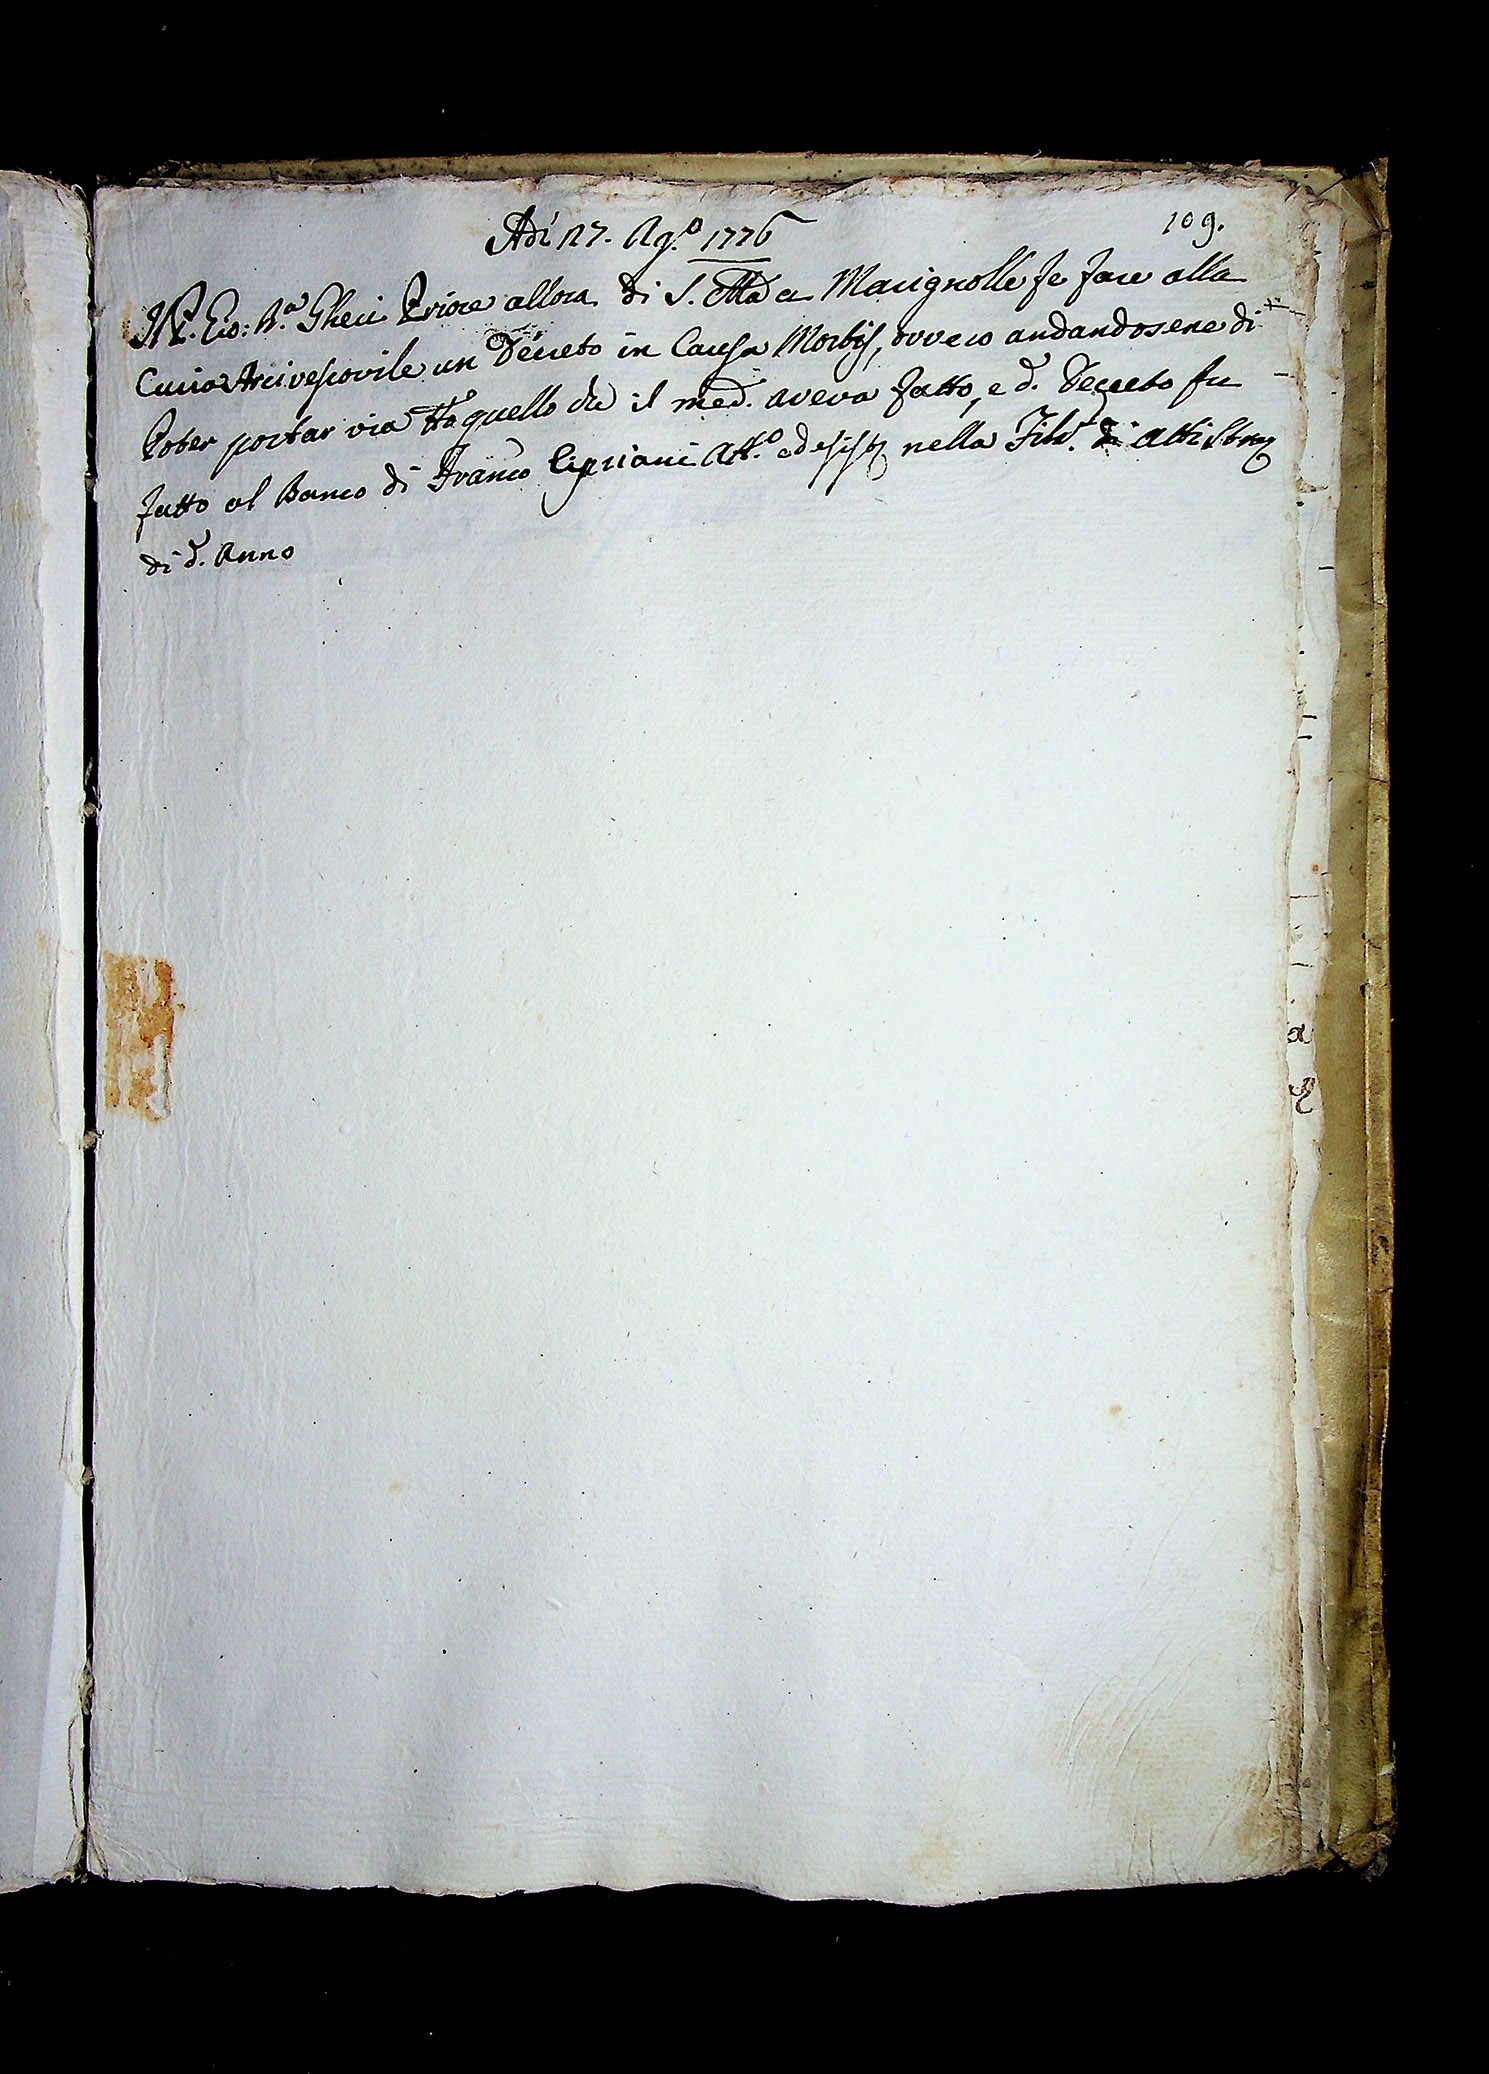 109.
Adì 27. Ag.º 1776
Il P. Gio: B.a Gheri Priore allora di S. Ma a Marignolle fe fare alla
Curia Arcivescovile un Decreto in Causa Morbis, ovvero andandosene di
Poter portar via tto quello che il med. aveva fatto, e d. Decreto fu
fatto al Banco di Franco Cipriani Att.º ed esiste nella Filza di Atti Straj
di d. Anno